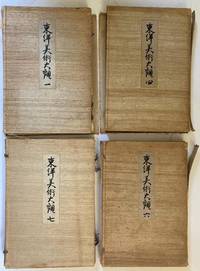 東洋美術大観 一
東洋美術大観 四
東洋美術大観 七
東洋美術大観 六